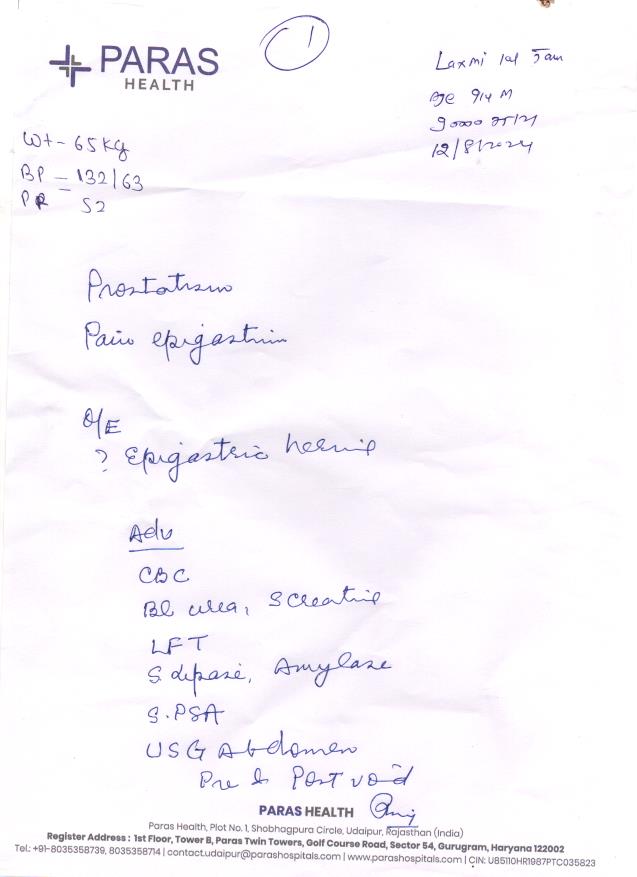 1
PARAS
HEALTH
Laxmi lal Jain
Age 91y M
12/8/2024
Wt - 65 kg
BP - 132/63
PR 52
Prostatism
Pain epigastrium
O/E
? Epigastric hernia
Adv
CBC
Bl urea, S creatine
LFT
S. Lipase, Amylase
S. PSA
USG Abdomen
Pre & Post void
PARAS HEALTH
Paras Health, Plot No. 1, Shobhagpura Circle, Udaipur, Rajasthan (India)
Register Address : 1st Floor, Tower B, Paras Twin Towers, Golf Course Road, Sector 54, Gurugram, Haryana 122002
Tel.: +91-8035358739, 8035358714 | contact.udaipur@parashospitals.com | www.parashospitals.com | CIN: U85110HR1987PTC035823